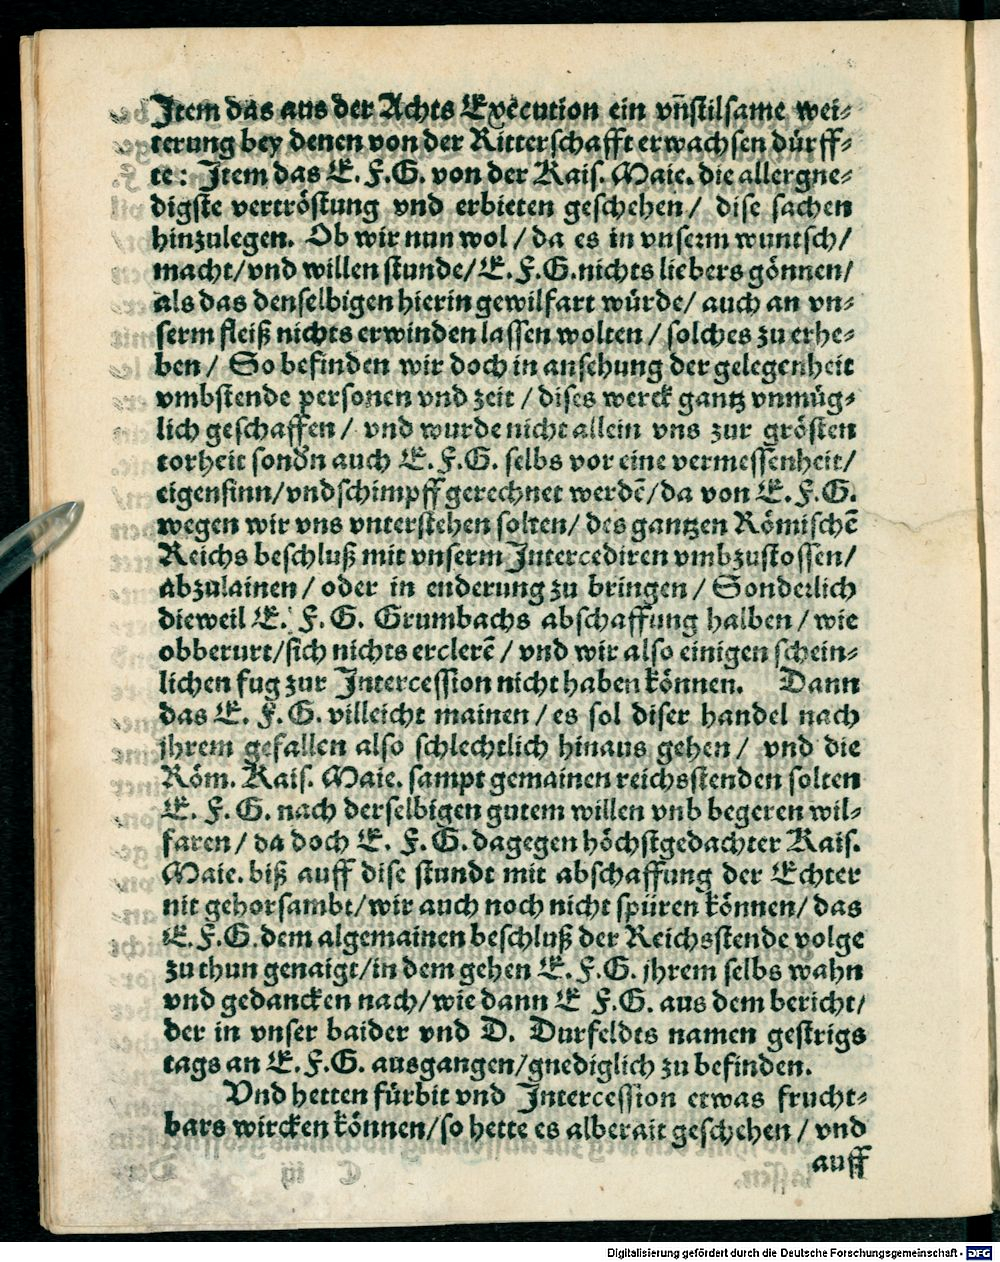 Item das aus der Achts Execution ein vñstilsame wei⸗
terung bey denen von der Ritterschafft erwachsen dürff⸗
te: Item das E. F. G. von der Kais. Maie. die allergne⸗
digste vertröstung vnd erbieten geschehen / dise sachen
hinzulegen. Ob wir nun wol / da es in vnserm wuntsch /
macht / vnd willen stunde / E. F. G. nichts liebers gönnen /
als das denselbigen hierin gewilfart würde / auch an vn⸗
serm fleiß nichts erwinden lassen wolten / solches zu erhe⸗
ben / So befinden wir doch in ansehung der gelegenheit
vmbstende personen vnd zeit / dises werck gantz vnmüg⸗
lich geschaffen / vnd wurde nicht allein vns zur grösten
torheit sondn auch E. F. G. selbs vor eine vermessenheit /
eigensinn / vnd schimpff gerechnet werdē / da von E. F. G.
wegen wir vns vnterstehen solten / des gantzen Römischē
Reichs beschluß mit vnserm Intercediren vmbzustossen /
abzulainen / oder in enderung zu bringen / Sonderlich
dieweil E. F. G. Grumbachs abschaffung halben / wie
obberurt / sich nichts erclerē / vnd wir also einigen schein⸗
lichen fug zur Intercession nicht haben können. Dann
das E. F. G. villeicht mainen / es sol diser handel nach
jhrem gefallen also schlechtlich hinaus gehen / vnd die
Röm. Kais. Maie. sampt gemainen reichsstenden solten
E. F. G. nach derselbigen gutem willen vnb begeren wil⸗
faren / da doch E. F. G. dagegen höchstgedachter Kais.
Maie. biß auff dise stundt mit abschaffung der Echter
nit gehorsambt / wir auch noch nicht spüren können / das
E. F. G. dem algemainen beschluß der Reichsstende volge
zu thun genaigt / in dem gehen E. F. G. jhrem selbs wahn
vnd gedancken nach / wie dann E F. G. aus dem bericht /
der in vnser baider vnd D. Durfeldts namen gestrigs
tags an E. F. G. ausgangen / gnediglich zu befinden.
Vnd hetten fürbit vnd Intercession etwas frucht⸗
bars wircken können / so hette es alberait geschehen / vnd
auff
Digitalisierung gefördert durch die Deutsche Forschungsgemeinschaft - DFG